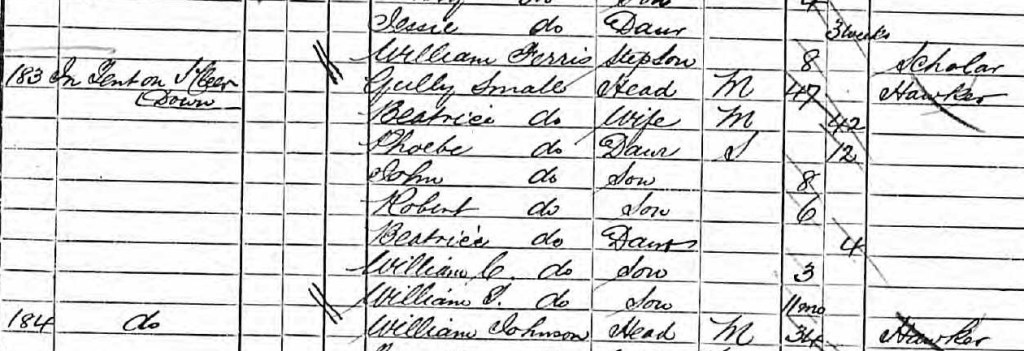 Jessie do Daur 3 weeks
William Ferris Stepson 8 Scholar
183 In Tent on St Cleer Gully Small Head M 47 Hawker
Down
Beatrice do Wife M 42
Phoebe do Daur S 12
John do Son 8
Robert do Son 6
Beatrice do Daur 4
William C. do Son 3
William T. do Son 11mo
184 do William Johnson Head M 34 Hawker